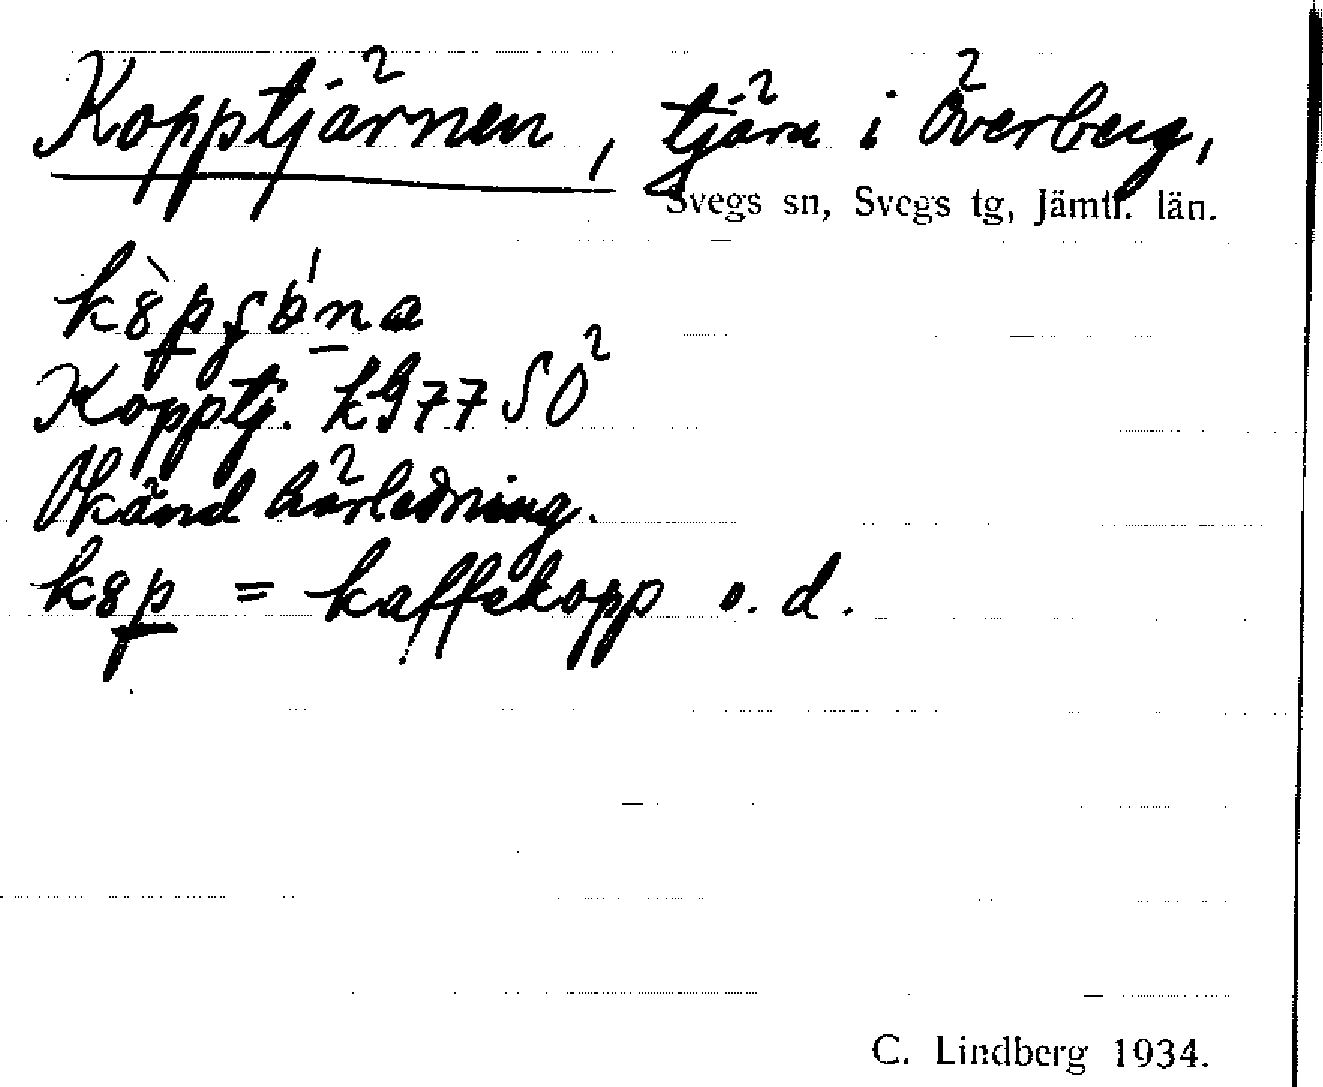 Kopptjärnen, tjärn i Överberg,
Svegs sn, Svegs tg, Jämtl. län.
Kopptj. k977 SO
Okänd härledning.
= kaffekopp o. d.
C. Lindberg 1934.